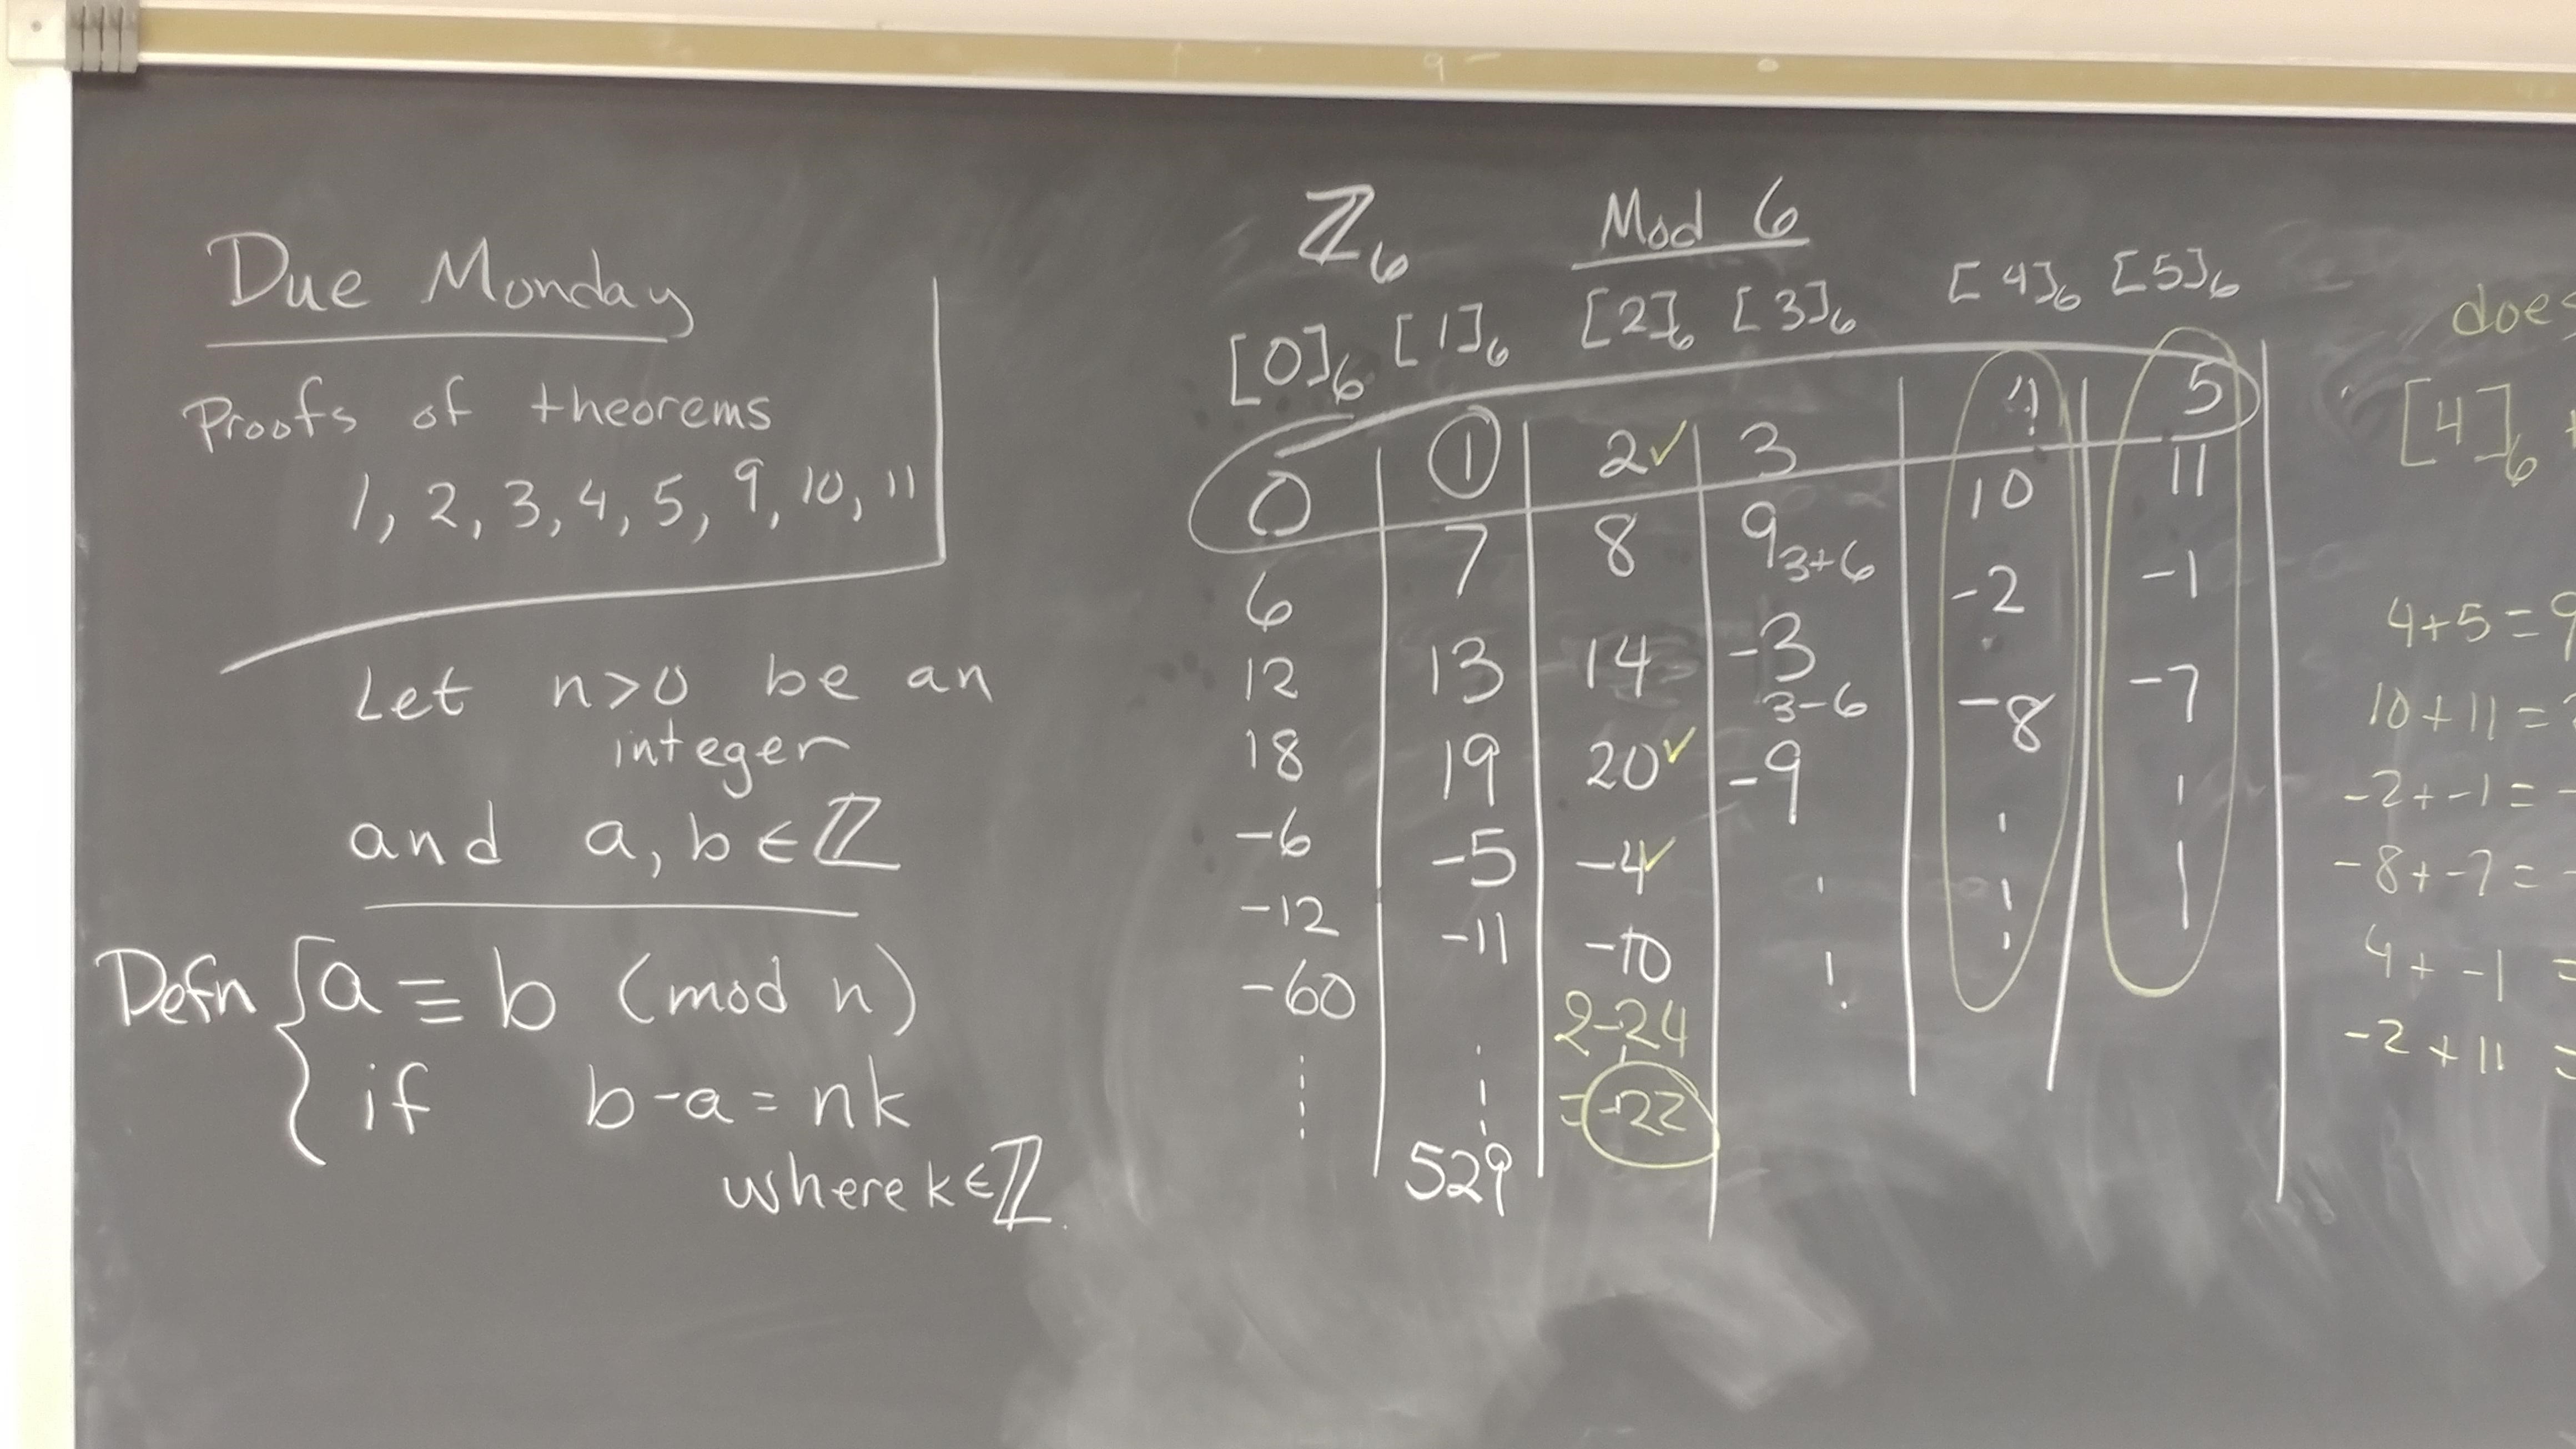 Due Monday
Proofs of theorems
1, 2, 3, 4, 5, 9, 10, 11
Let n>0 be an
integer
and a, b ∈ ℤ
Defn { a ≡ b (mod n)
if b-a = nk
where k ∈ ℤ
ℤ₆ Mod 6
[0]₆ [1]₆ [2]₆ [3]₆ [4]₆ [5]₆
0 1 2✓ 3 4 5
6 7 8 9 3+6 10 11
12 13 14 -3 3-6 -2 -1
18 19 20✓ -9 -8 -7
-6 -5 -4✓
-12 -11 -10
-60 2-24
= -22
529
[4]₆
4+5=9
10+11=
-2+-1=-
-8+-7=-
4+-1=
-2+11=